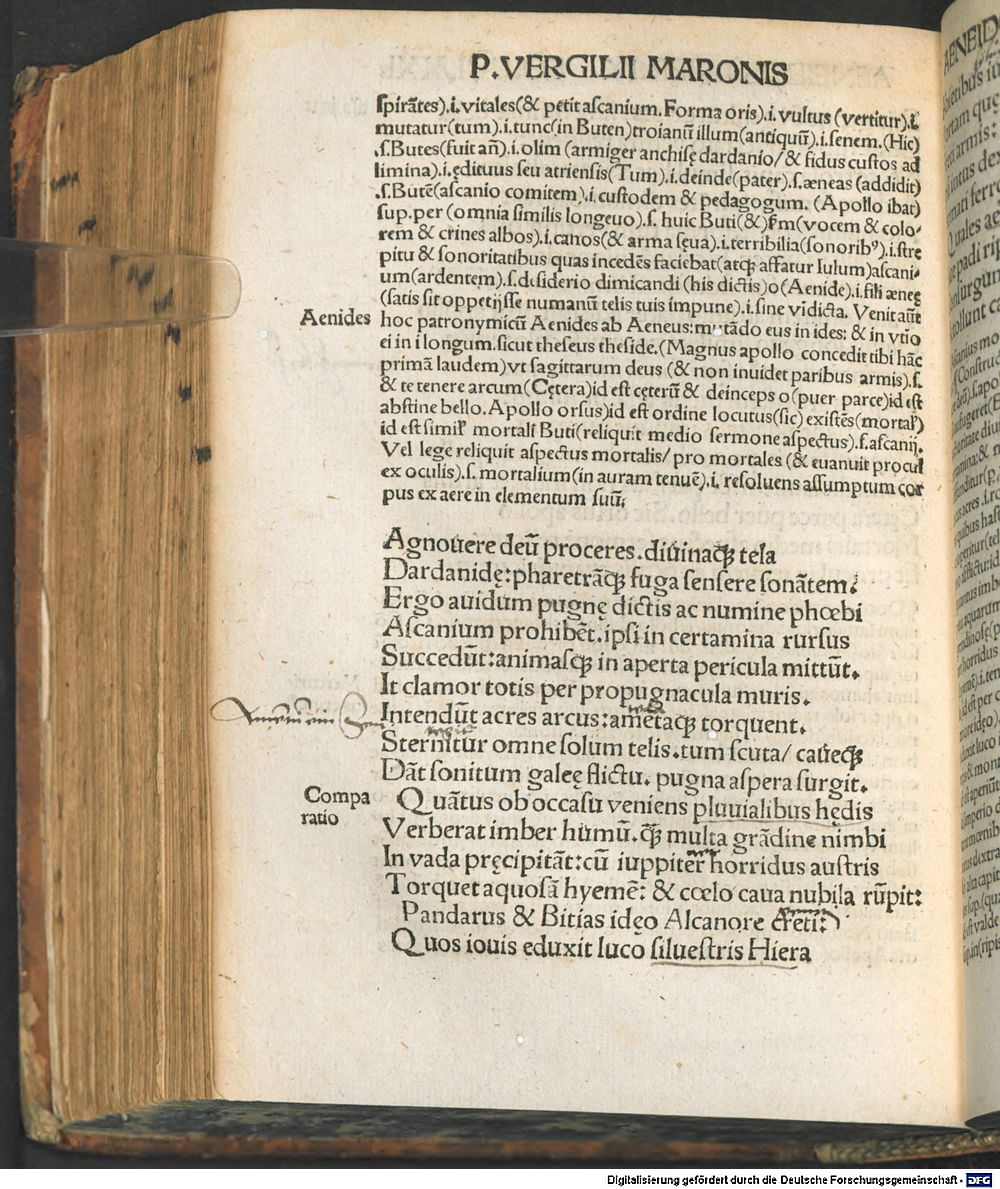 P.VERGILII MARONIS
spirãtes).i.vitales(& petit ascanium. Forma oris).i. vultus (vertitur).i.
mutatur(tum).i.tunc(in Buten)troianũ illum(antiquũ).i.senem.(Hic)
.s.Butes(fuit añ).i.olim (armiger anchisę dardanio/& fidus custos ad
limina).i.ędituus seu atriensis(Tum).i.deinde(pater).s.æneas (addidit)
.s.Butẽ(ascanio comitem).i.custodem & pedagogum. (Apollo ibat)
sup.per (omnia similis longeuo).s. huic Buti(&)p̃m(vocem & colo-
rem & crines albos).i.canos(& arma sęua).i.terribilia(sonoribꝰ).i.stre
pitu & sonoritatibus quas incedẽs faciebat(atqꝫ affatur Iulum)ascani-
um(ardentem).s.desiderio dimicandi (his dictis)o(Aenide).i.fili æneę
(satis sit oppetijsse numanũ telis tuis impune).i.sine vĩdicta. Venit aũt
Aenides
hoc patronymicũ Aenides ab Aeneus:mutãdo eus in ides: & in vtio
ei in i longum.sicut theseus theside.(Magnus apollo concedit tibi hãc
primã laudem)vt sagittarum deus (& non inuidet paribus armis).s.
& te tenere arcum(Cętera)id est cęterũ & deinceps o(puer parce)id est
abstine bello. Apollo orsus)id est ordine locutus(sic) existẽs(mortaꝉ)
id est simiꝉ mortali Buti(reliquit medio sermone aspectus).s.ascanij.
Vel lege reliquit aspectus mortalis/ pro mortales (& euanuit procul
ex oculis).s. mortalium(in auram tenuẽ).i. resoluens assumptum cor
pus ex aere in elementum suũ.
Agnouere deũ proceres.diuinaqꝫ tela
Dardanidę:pharetrãqꝫ fuga sensere sonãtem.
Ergo auidum pugnę dictis ac numine phœbi
Ascanium prohibẽt.ipsi in certamina rursus
Succedũt:animasqꝫ in aperta pericula mittũt.
It clamor totis per propugnacula muris.
Intendũt acres arcus:amẽtaqꝫ torquent.
Sternitur omne solum telis.tum scuta/ caueqꝫ
Dãt sonitum galeę flictu. pugna aspera surgit.
Compa
ratio
Quãtus ob occasu veniens pluuialibus hędis
Verberat imber humũ.qꝫ̃ multa grãdine nimbi
In vada pręcipitãt:cũ iuppiter horridus austris
Torquet aquosã hyemẽ: & cœlo caua nubila rũpit:
Pandarus & Bitias idęo Alcanore creti:
Quos iouis eduxit luco siluestris Hiera
Digitalisierung gefördert durch die Deutsche Forschungsgemeinschaft - DFG